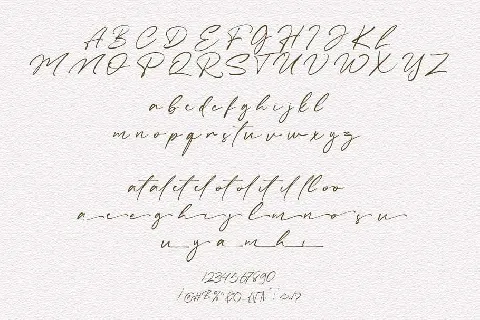 A B C D E F G H I J K L
M N O P Q R S T U V W X Y Z
a b c d e f g h i j k l
m n o p q r s t u v w x y z
at al et el ot ol it il ll oo
a c e g h y l m n o s u
u y a m h i
1234567890